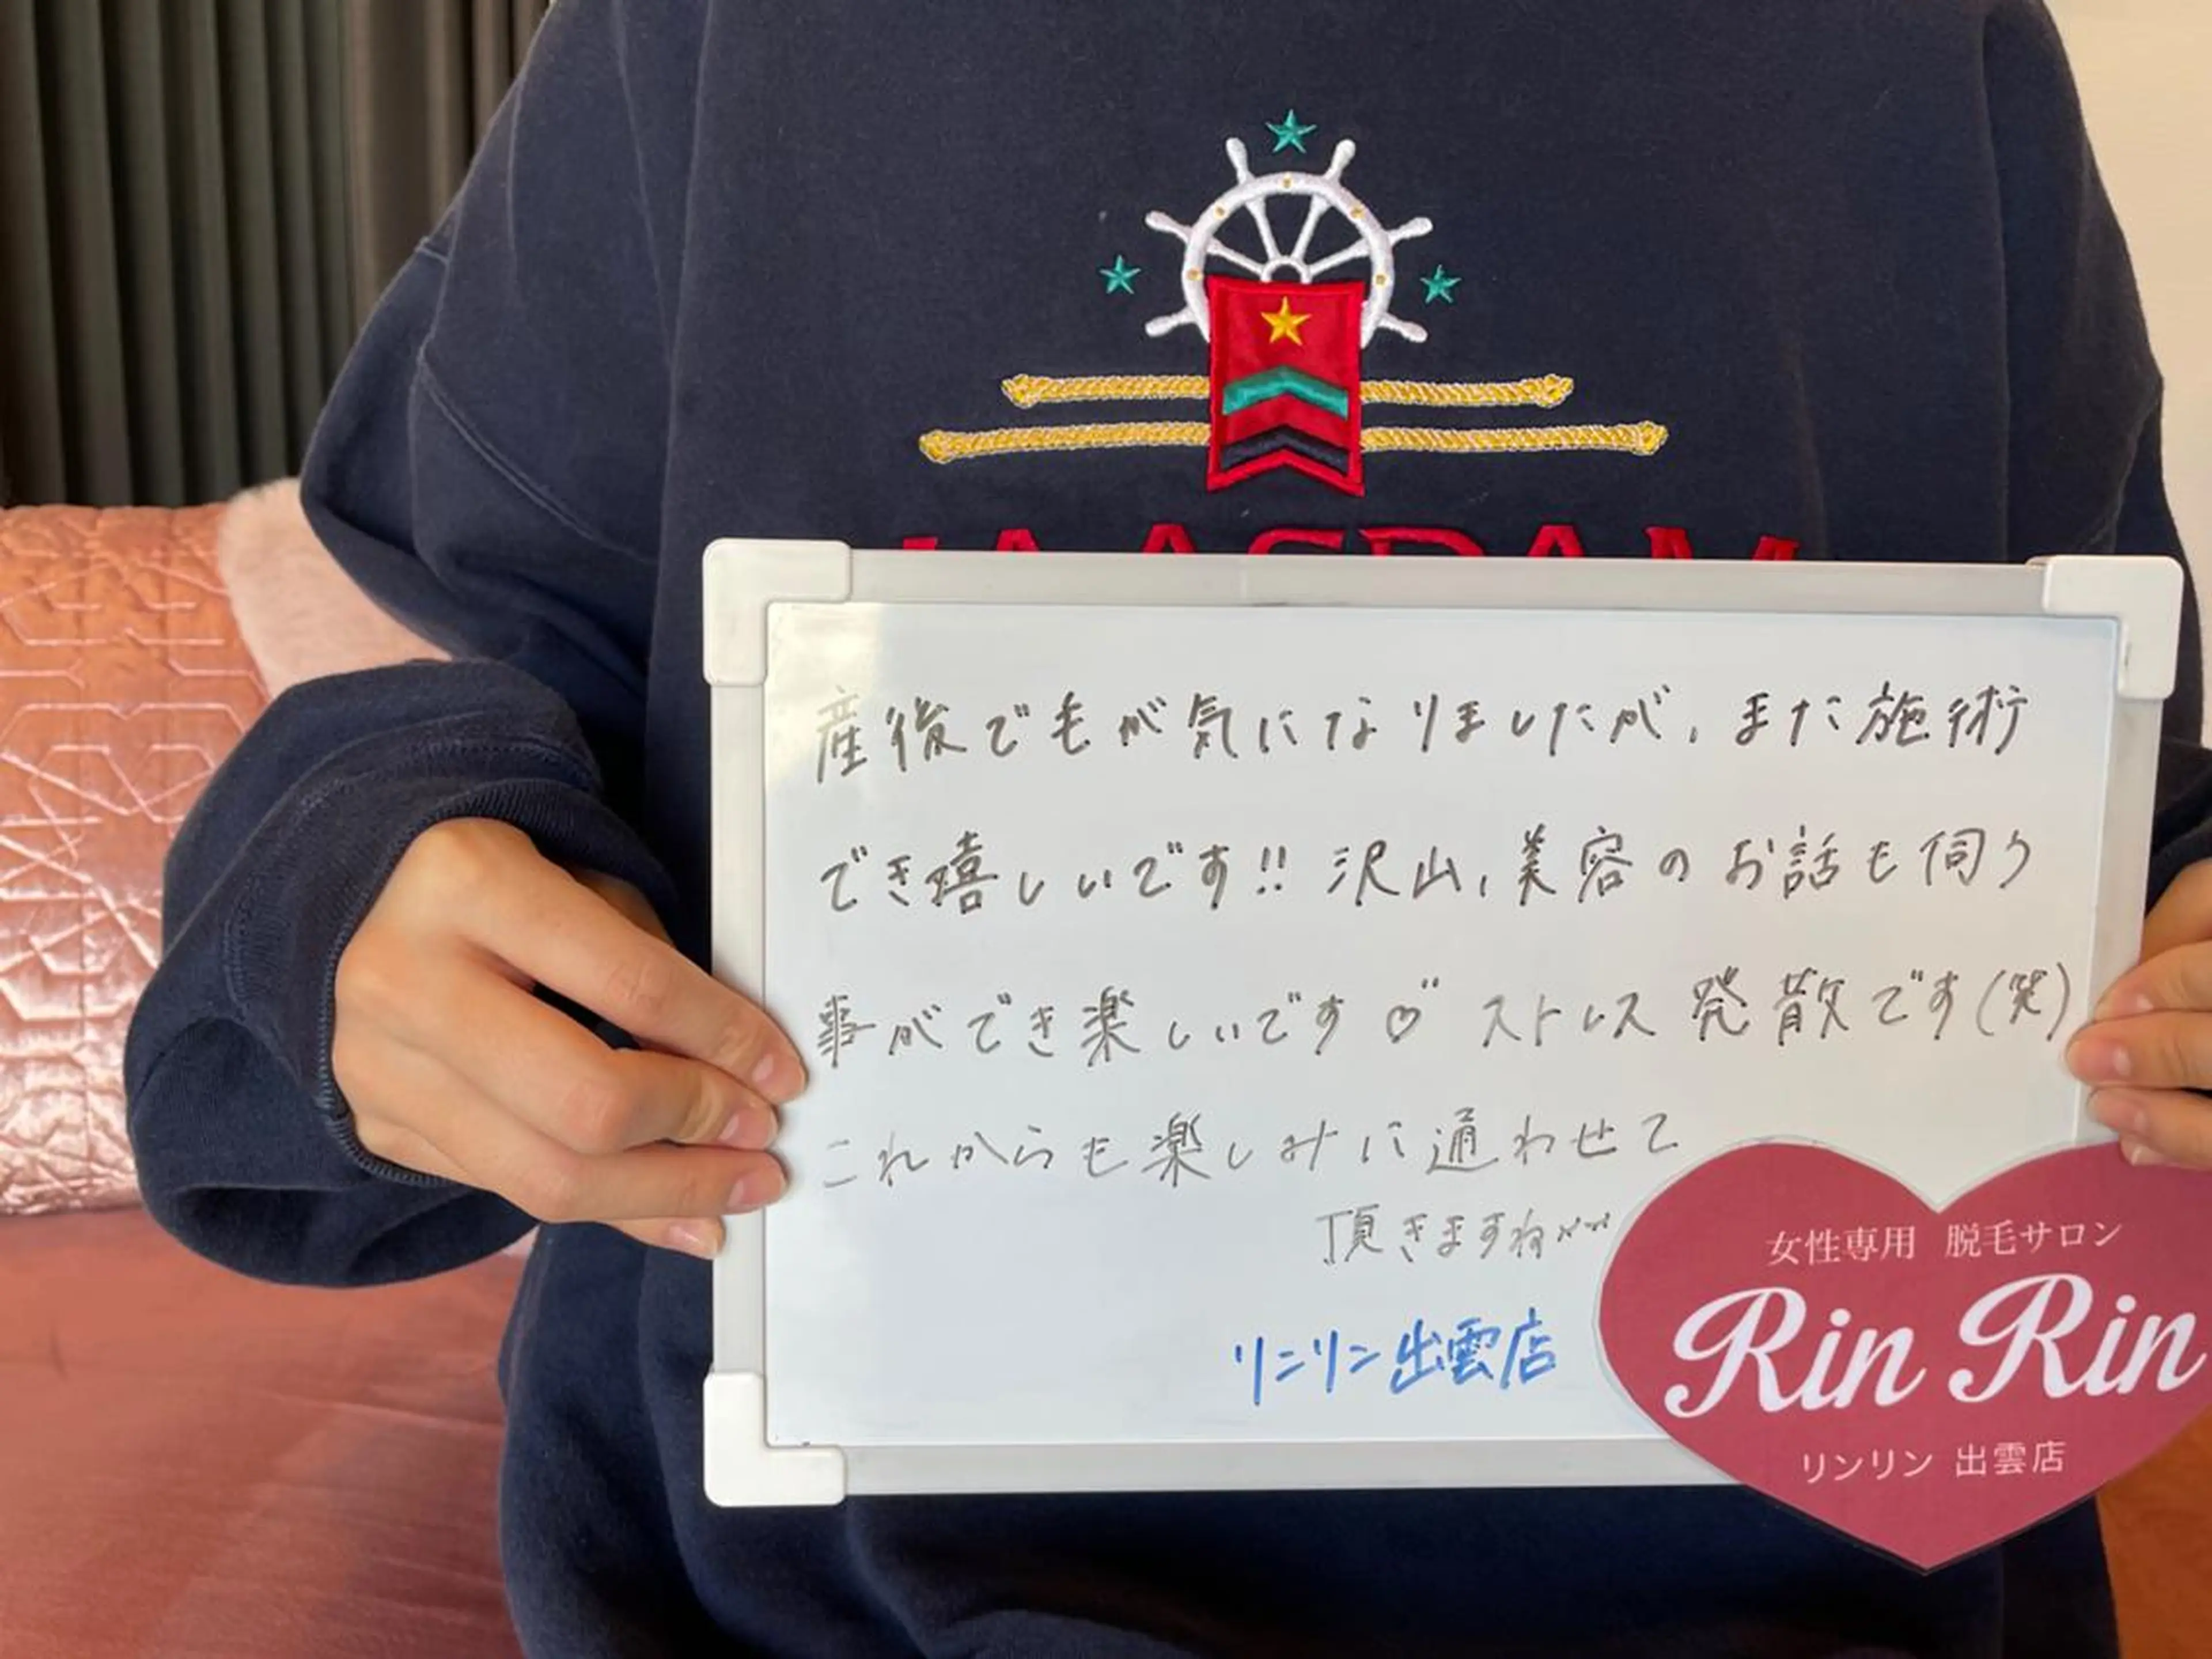 産後で毛が気になりましたが、また施術
でき嬉しいです!! 沢山、美容のお話も伺う
事ができ楽しいです♡" ストレス発散です(笑)
これからも楽しみに通わせて
頂きますね
リンリン出雲店
女性専用 脱毛サロン
Rin Rin
リンリン 出雲店